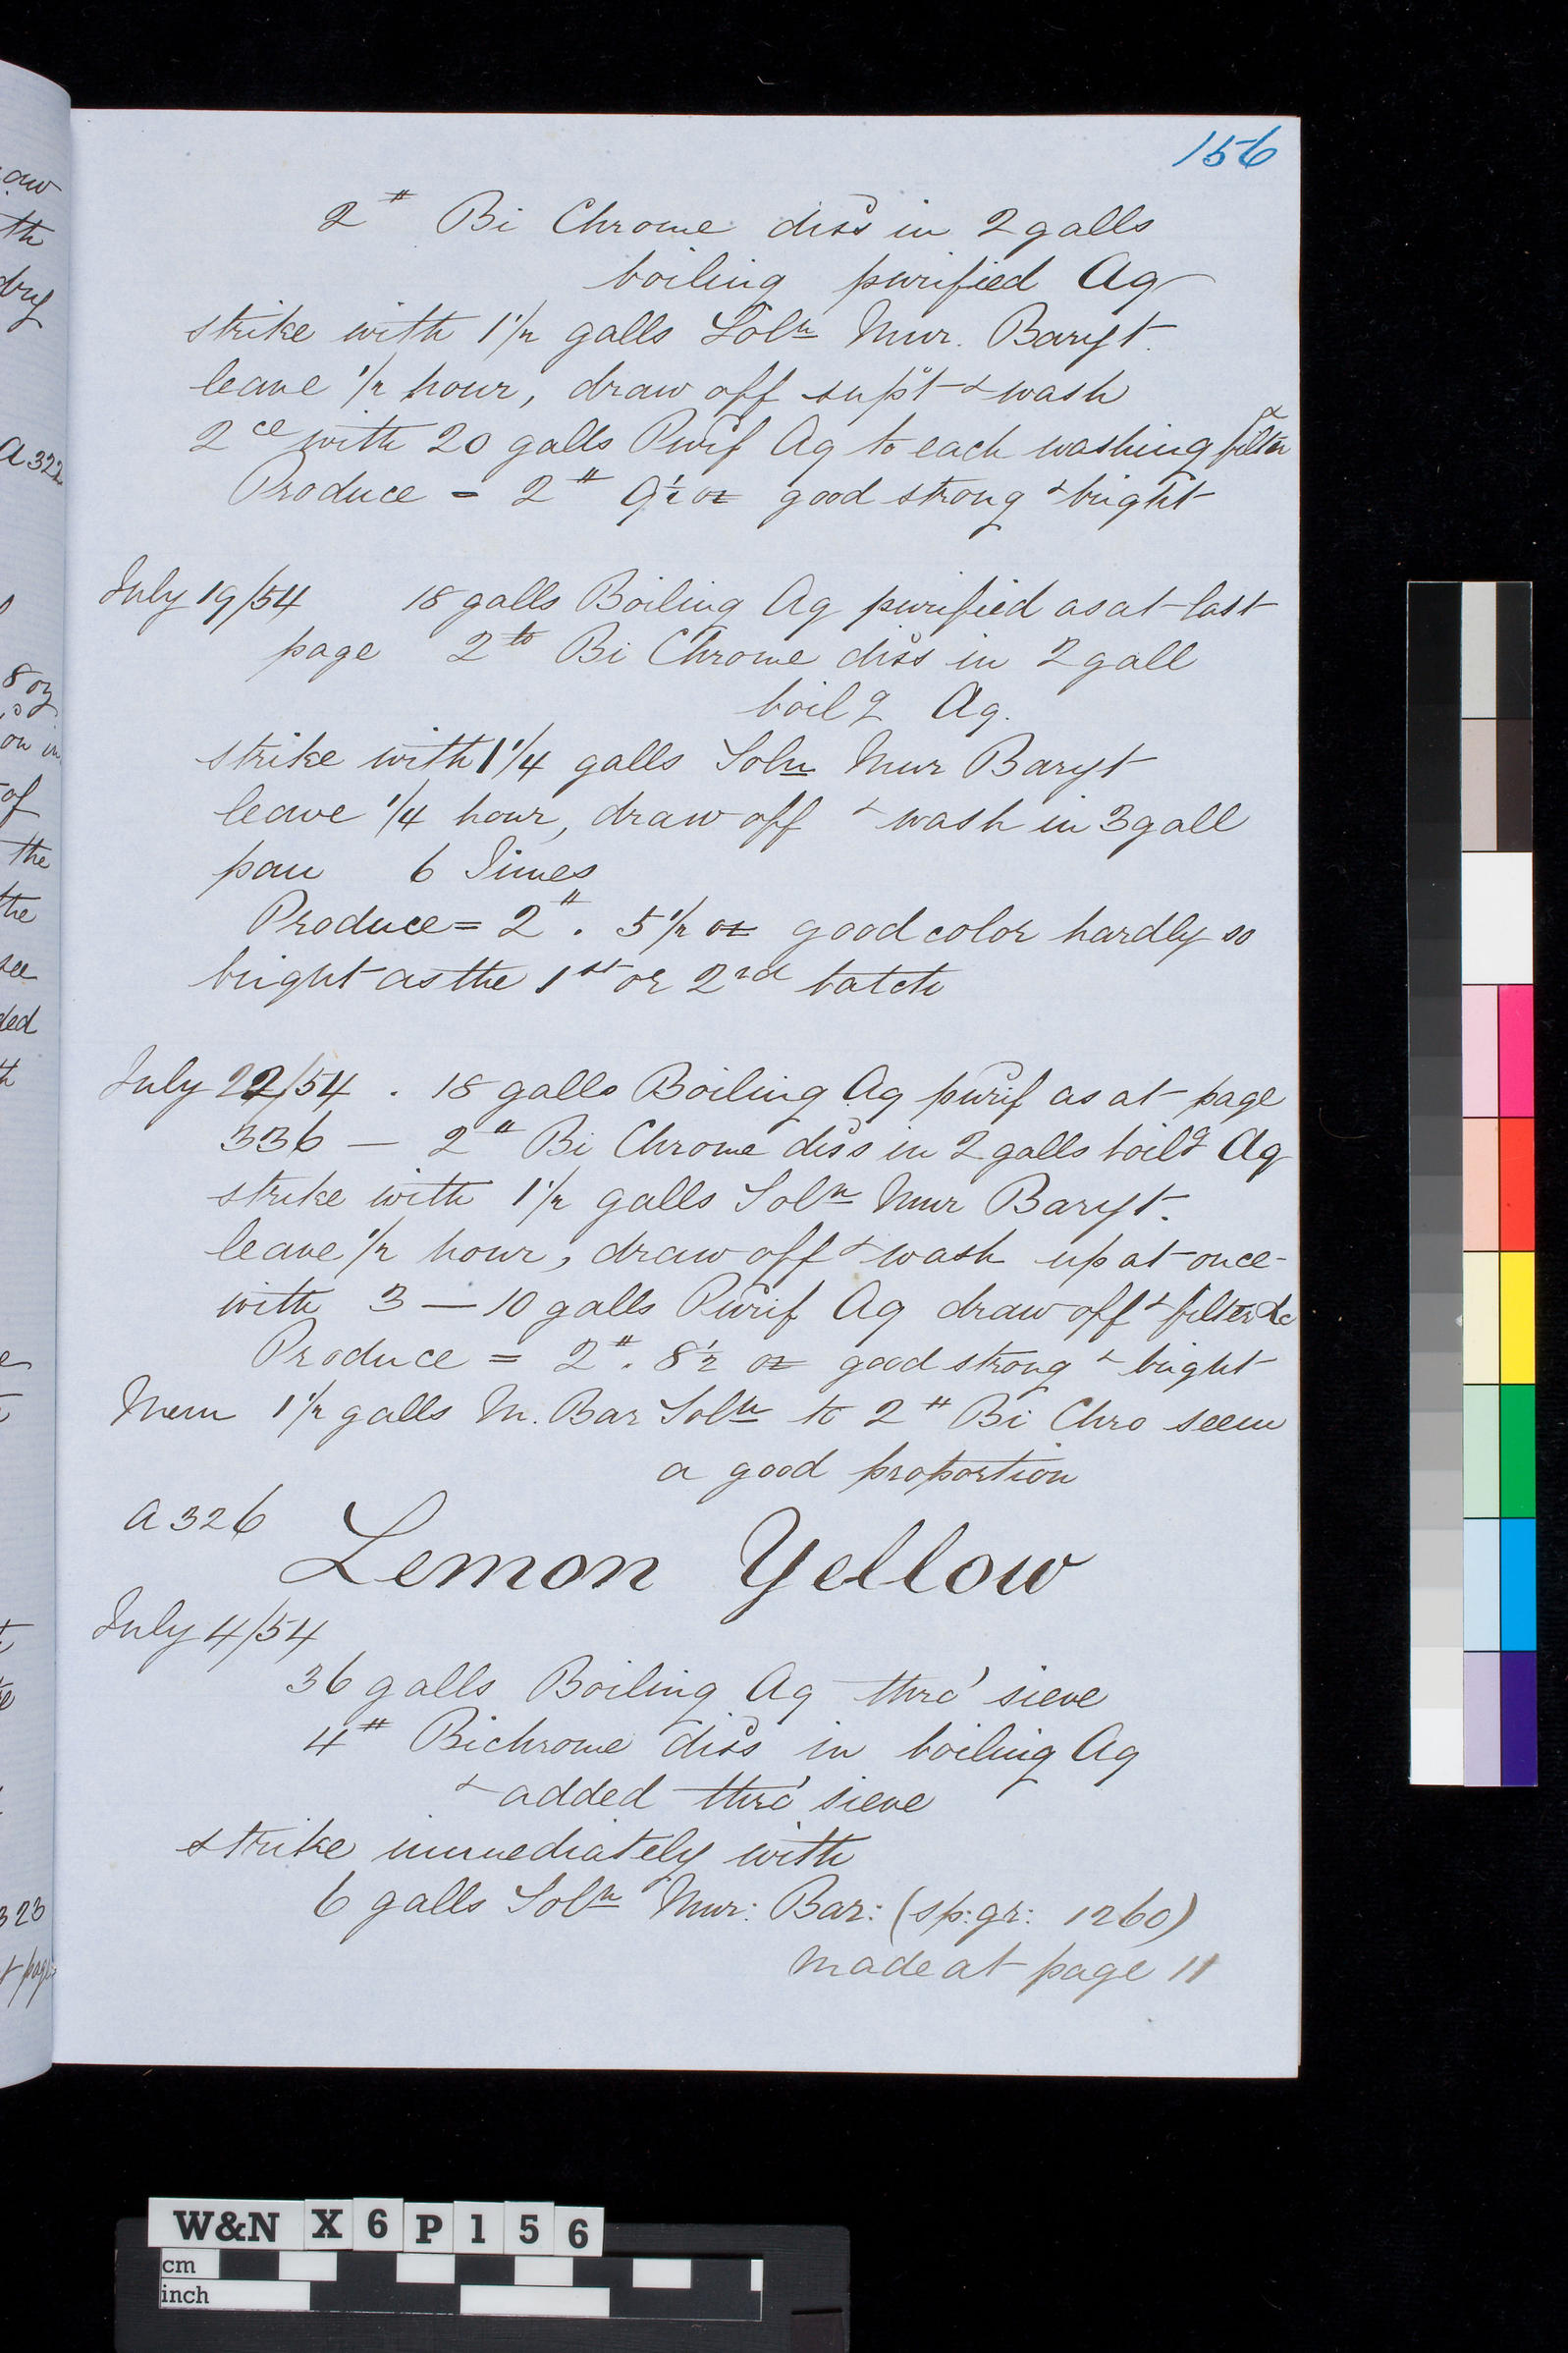 156
2 # Bi Chrome diss in 2 galls
boiling purified Aq
strike with 1 1/2 galls Soln Mur. Baryt.
leave 1/2 hour, draw off supt & wash
2ce with 20 galls Purif Aq to each washing filter
Produce = 2 # 9 1/2 oz good strong & bright
July 19/54 18 galls Boiling Aq purified as at last
page 2 lb Bi Chrome diss in 2 gall
boilg Aq.
strike with 1 1/4 galls Soln Mur Baryt
leave 1/4 hour, draw off & wash in 3 gall
pan 6 Times
Produce = 2 #. 5 1/2 oz good color hardly so
bright as the 1st or 2nd batch
July 22/54. 18 galls Boiling Aq purif as at page
336 — 2 # Bi Chrome diss in 2 galls boilg Aq
strike with 1 1/2 galls Soln Mur Baryt.
leave 1/2 hour, draw off & wash up at once
with 3 — 10 galls Purif Aq draw off & filter &c
Produce = 2 #. 8 1/2 oz good strong & bright
Mem 1 1/2 galls M. Bar Soln to 2 # Bi Chro seem
a good proportion
A 326
Lemon Yellow
July 4/54
36 galls Boiling Aq thro' sieve
4 # Bichrome diss in boiling Aq
& added thro' sieve
strike immediately with
6 galls Soln Mur: Bar: (sp:gr: 1260)
made at page 11
aw
th
dry
A 322
8 oz
on in
of
the
the
see
ded
th
323
t page
W&N X 6 P 1 5 6
cm
inch